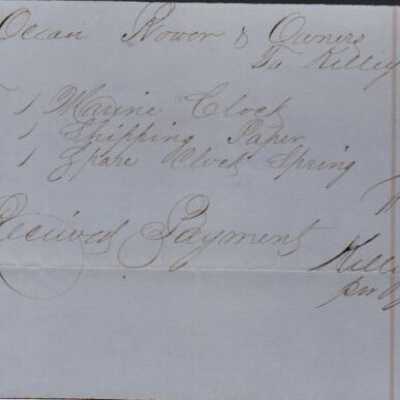 Ocean Rover & Owners
To Kelley
1 Marine Clock
1 Shipping Paper
1 Spare Clock Spring
Received Payment
Kelle
per